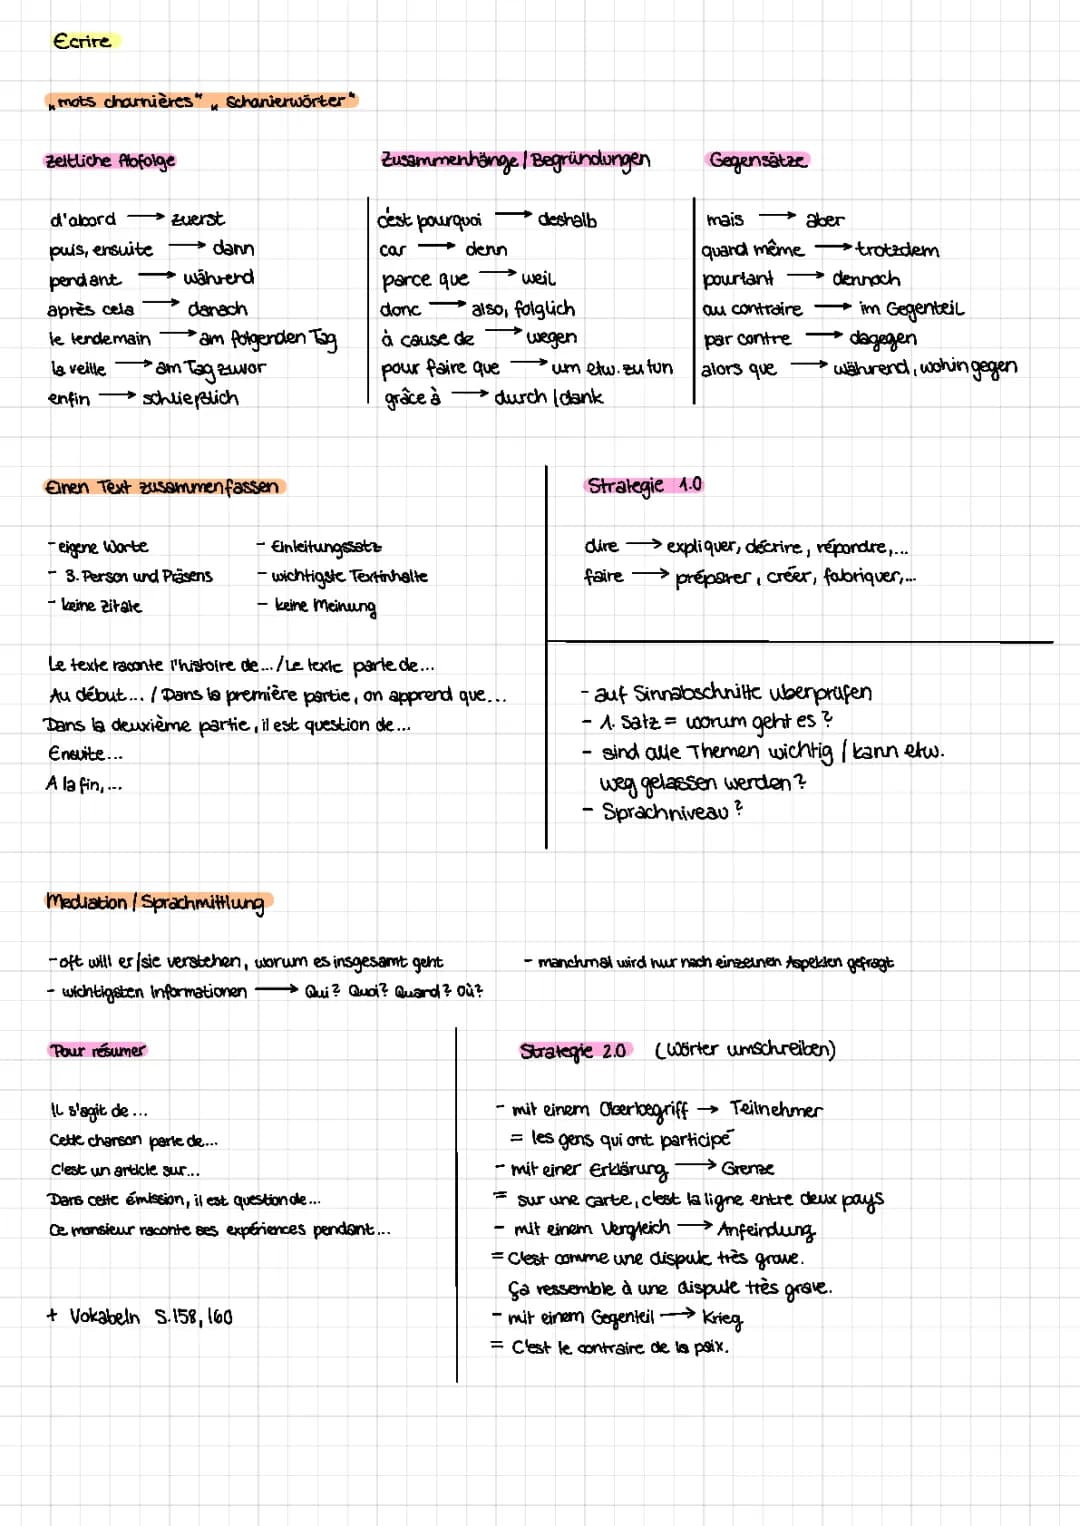 Ecrire
„mots charnières" „Schanierwörter"
zeitliche Abfolge
d'abord → zuerst
puis, ensuite → dann
pendant → während
après cela → danach
le lendemain → am folgenden Tag
la veille → am Tag zuvor
enfin → schließlich
Zusammenhänge / Begründungen
c'est pourquoi → deshalb
car → denn
parce que → weil
donc → also, folglich
à cause de → wegen
pour faire que → um etw. zu tun
grâce à → durch / dank
Gegensätze
mais → aber
quand même → trotzdem
pourtant → dennoch
au contraire → im Gegenteil
par contre → dagegen
alors que → während, wohin gegen
Einen Text zusammenfassen
- eigene Worte
- 3. Person und Präsens
- keine Zitate
- Einleitungssatz
- wichtigste Textinhalte
- keine Meinung
Le texte raconte l'histoire de... / Le texte parle de...
Au début... / Dans la première partie, on apprend que...
Dans la deuxième partie, il est question de...
Ensuite...
A la fin, ...
Strategie 1.0
dire → expliquer, décrire, répondre,...
faire → préparer, créer, fabriquer,...
- auf Sinnabschnitte überprüfen
- 1. Satz = worum geht es?
- sind alle Themen wichtig / kann etw.
weg gelassen werden?
- Sprachniveau?
Mediation / Sprachmittlung
- oft will er/sie verstehen, worum es insgesamt geht
- wichtigsten Informationen → Qui? Quoi? Quand? Où?
- manchmal wird nur nach einzelnen Aspekten gefragt
Pour résumer
Il s'agit de...
Cette chanson parle de...
C'est un article sur...
Dans cette émission, il est question de...
Ce monsieur raconte ses expériences pendant...
+ Vokabeln S.158, 160
Strategie 2.0 (Wörter umschreiben)
- mit einem Oberbegriff → Teilnehmer
= les gens qui ont participé
- mit einer Erklärung → Grenze
= sur une carte, c'est la ligne entre deux pays
- mit einem Vergleich → Anfeindung
= C'est comme une dispute très grave.
Ça ressemble à une dispute très grave.
- mit einem Gegenteil → Krieg
= C'est le contraire de la paix.